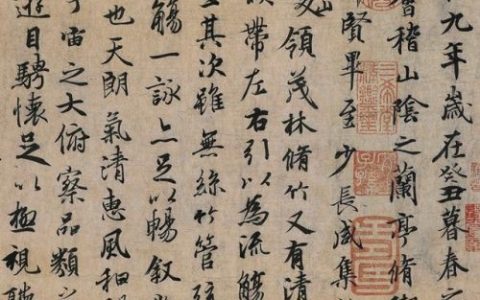 九年歲在癸丑暮春之
會稽山陰之蘭亭脩
賢畢至少長咸集
領茂林脩竹又有清
帶左右引以為流觴
其次雖無絲竹管弦
觴一詠亦足以暢叙
也天朗氣清惠風和
宙之大俯察品類之
遊目騁懷足以極視聽